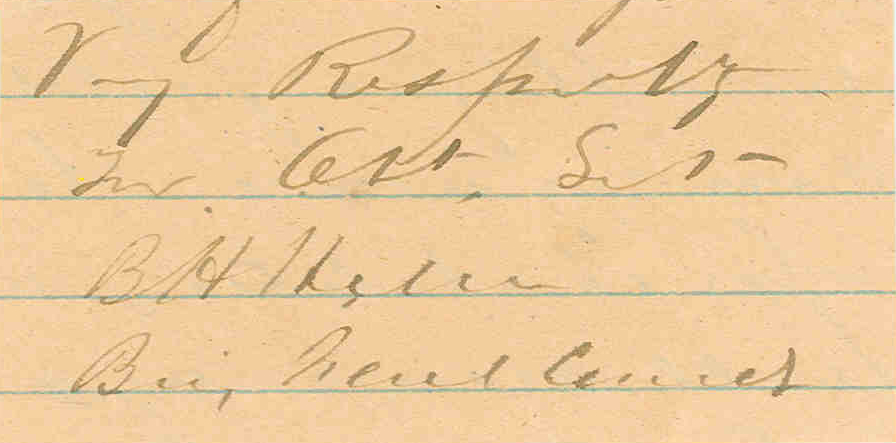 Very Respectly
Your Obt, Svt
B H Helm
Brig, Genrl Comdg